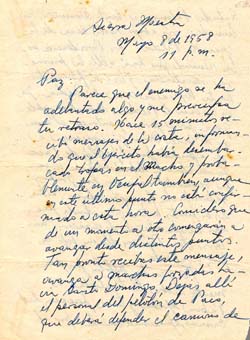 Sierra Maestra
Mayo 8 de 1958
11 p.m.
Paz:
Parece que el enemigo se ha
adelantado algo y me preocupa
tu retraso. Hace 15 minutos re-
cibí mensajes de la costa, informan-
do que el ejército había desembar-
cado tropas en el Macho y proba-
blemente en Ocujal también, aunque
en este último punto no está confir-
mado a esta hora. Considero que
de un momento a otro comenzarán a
avanzar desde distintos puntos.
Tan pronto recibas este mensaje,
avanza a marchas forzadas ha-
cia Santo Domingo. Dejas allí
el personal del pelotón de Paco,
que deberá defender el camino de